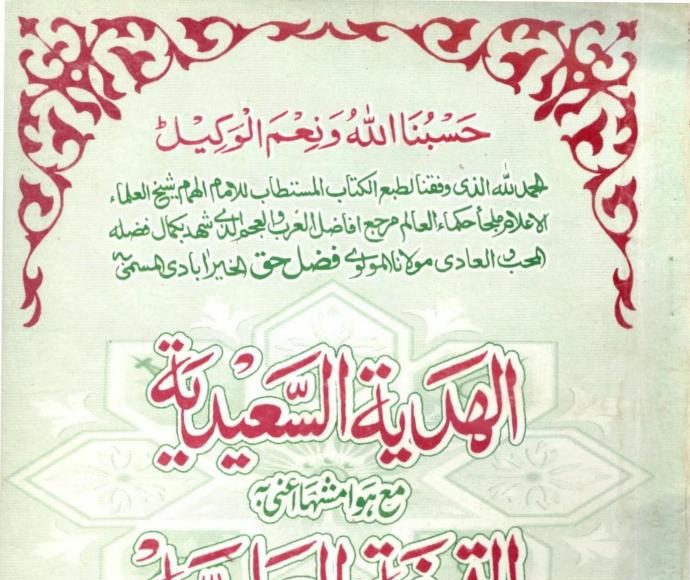 حَسْبُنَا اللّٰهُ وَنِعْمَ الْوَكِيْلُ
الحمد لله الذى وفقنا لطبع الكتاب المستطاب للامام الهمام شيخ العلماء
الاعلام ملجأ حكماء العالم مرجع افاضل العرب والعجم لذى شهد بكمال فضله
المحب والعادى مولانا المولوى فضل حق الخيرابادى المسمى بہ
الهَديَة السَّعيْديَة
مع هوامشها اعنى بہ